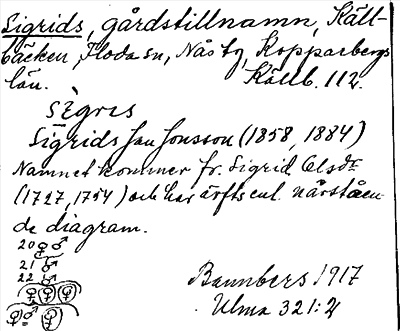 Sigrids, gårdstillnamn, Käll-
bäcken, Floda sn, Nås tg, Kopparbergs
län. Källb. 112.
Sigrids Jan Jonsson (1858, 1884)
Namnet kommer fr. Sigrid Olsdr
(1727, 1754) och har ärfts enl. nåståen-
de diagram.
20 ♀ ♂
21 ♂
22 ♂
♀ ♀ ♀
♀ = ♂ ♀
1917
Ulma 321:4